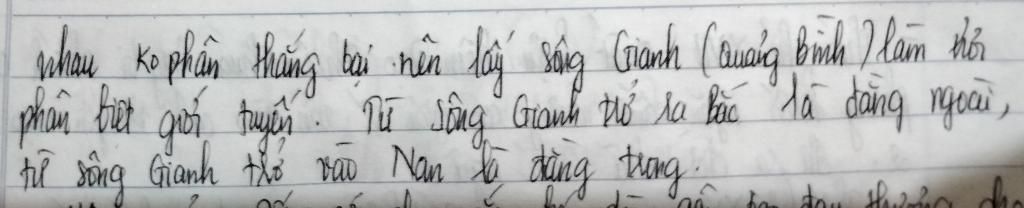 nhau ko phân thắng bại nên lấy sông Gianh (Quảng Bình) làm nơi
phân biệt giới tuyến. Từ sông Gianh trở ra Bắc là đàng ngoài,
từ sông Gianh trở vào Nan là đàng trong.